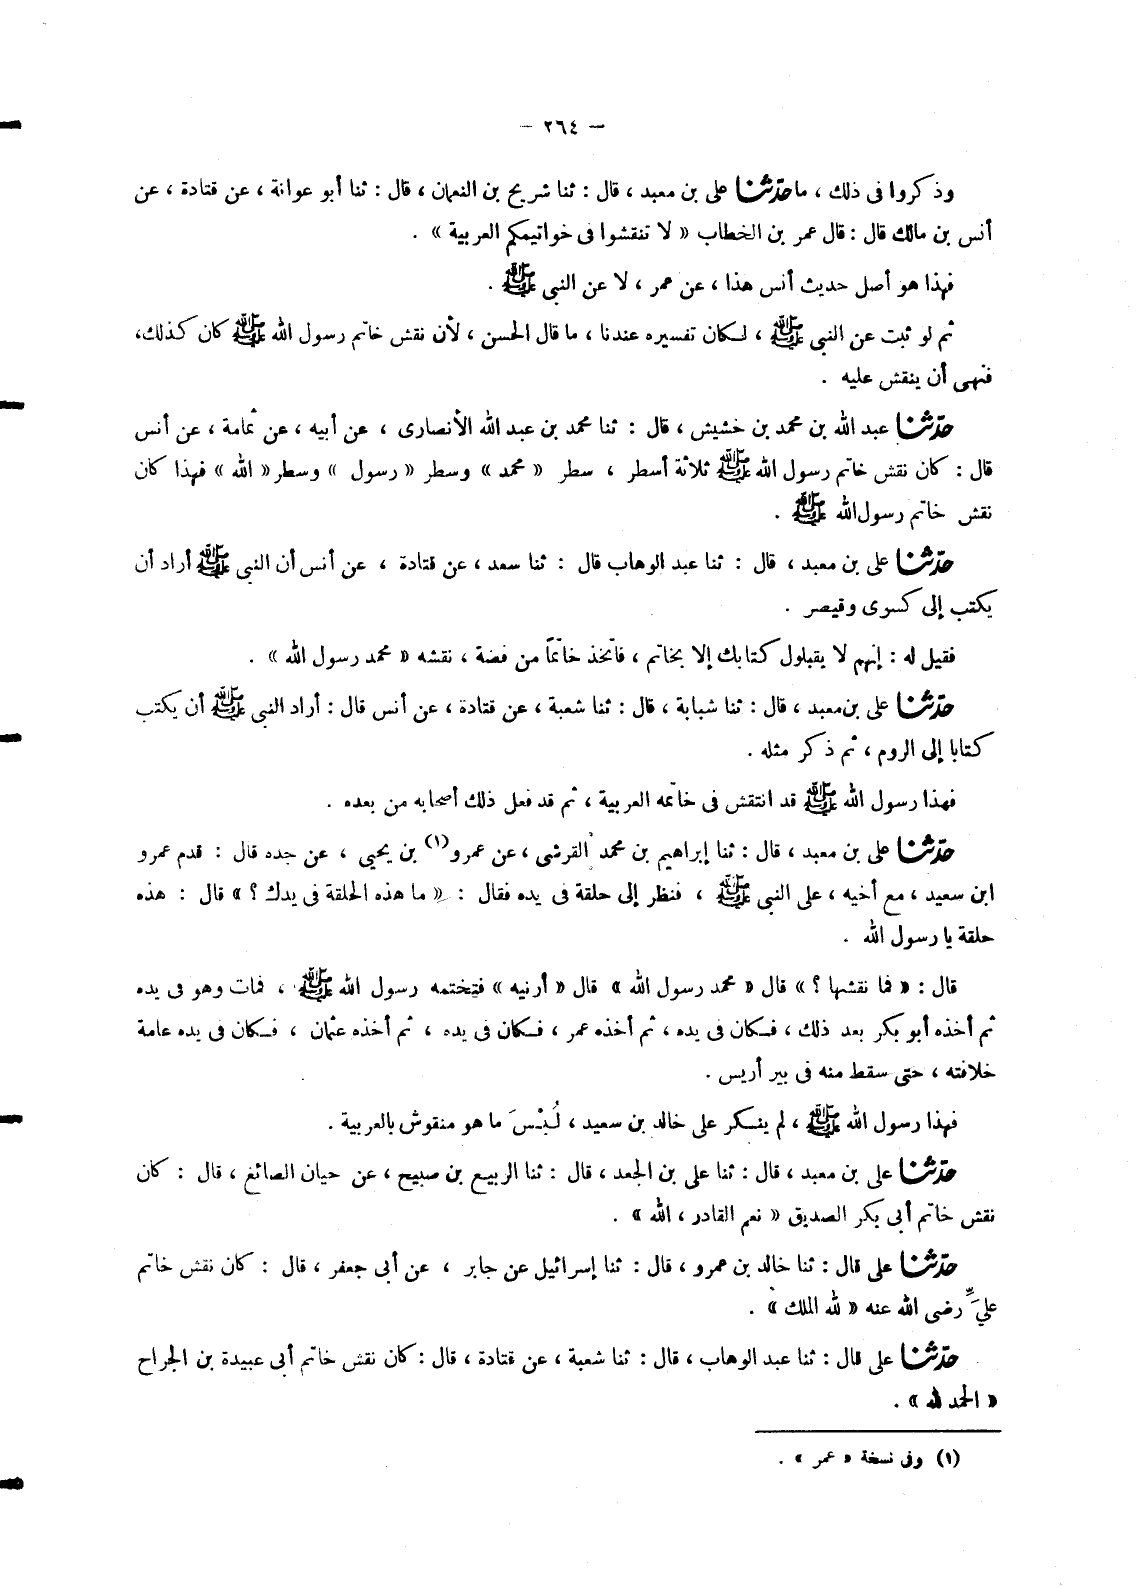 — ٢٦٤ —
وذكروا فى ذلك ، ما حدّثنا على بن معبد ، قال : ثنا شريح بن النعمان ، قال : ثنا أبو عوانة ، عن قتادة ، عن
أنس بن مالك قال : قال عمر بن الخطاب « لا تنقشوا فى خواتيمكم العربية » .
فهذا هو أصل حديث أنس هذا ، عن عمر ، لا عن النبى ﷺ .
ثم لو ثبت عن النبى ﷺ ، لكان تفسيره عندنا ، ما قال الحسن ، لأن نقش خاتم رسول الله ﷺ كان كذلك،
فنهى أن ينقش عليه .
حدّثنا عبد الله بن محمد بن خشيش ، قال : ثنا محمد بن عبد الله الأنصارى ، عن أبيه ، عن ثمامة ، عن أنس
قال : كان نقش خاتم رسول الله ﷺ ثلاثة أسطر ، سطر « محمد » وسطر « رسول » وسطر « الله » فهذا كان
نقش خاتم رسول الله ﷺ .
حدّثنا على بن معبد ، قال : ثنا عبد الوهاب قال : ثنا سعد ، عن قتادة ، عن أنس أن النبى ﷺ أراد أن
يكتب إلى كسرى وقيصر .
فقيل له : إنهم لا يقبلول كتابك إلا بخاتم ، فاتّخذ خاتماً من فضة ، نقشه « محمد رسول الله » .
حدّثنا على بن معبد ، قال : ثنا شبابة ، قال : ثنا شعبة ، عن قتادة ، عن أنس قال : أراد النبى ﷺ أن يكتب
كتابا إلى الروم ، ثم ذكر مثله .
فهذا رسول الله ﷺ قد انتقش فى خاتمه العربية ، ثم قد فعل ذلك أصحابه من بعده .
حدّثنا على بن معبد ، قال : ثنا إبراهيم بن محمد القرشى ، عن عمرو(١) بن يحيى ، عن جده قال : قدم عمرو
ابن سعيد ، مع أخيه ، على النبى ﷺ ، فنظر إلى حلقة فى يده فقال : « ما هذه الحلقة فى يدك ؟ » قال : هذه
حلقة يا رسول الله .
قال : « فما نقشها ؟ » قال « محمد رسول الله » قال « أرنيه » فتختمه رسول الله ﷺ ، فمات وهو فى يده
ثم أخذه أبو بكر بعد ذلك ، فكان فى يده ، ثم أخذه عمر ، فكان فى يده ، ثم أخذه عثمان ، فكان فى يده عامة
خلافته ، حتى سقط منه فى بير أريس .
فهذا رسول الله ﷺ ، لم ينكر على خالد بن سعيد ، لُبْسَ ما هو منقوش بالعربية .
حدّثنا على بن معبد ، قال : ثنا على بن الجعد ، قال : ثنا الربيع بن صبيح ، عن حيان الصائغ ، قال : كان
نقش خاتم أبى بكر الصديق « نعم القادر ، الله » .
حدّثنا على قال : ثنا خالد بن عمرو ، قال : ثنا إسرائيل عن جابر ، عن أبى جعفر ، قال : كان نقش خاتم
علىّ رضى الله عنه « لله الملك » .
حدّثنا على قال : ثنا عبد الوهاب ، قال : ثنا شعبة ، عن قتادة ، قال : كان نقش خاتم أبى عبيدة بن الجراح
« الحمد لله » .
(١) وفى نسخة « عمر » .